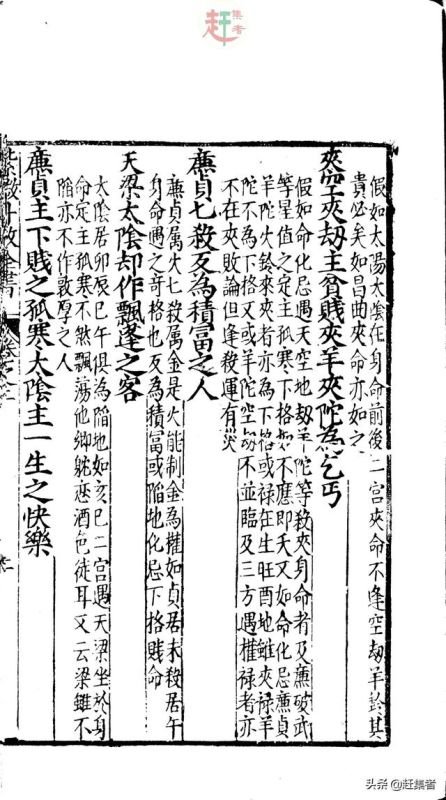 赶集者
假如太陽太陰在身命前後二宮夾命不逢空劫羊鈴其
貴必矣如昌曲夾命亦如之
夾空夾劫主貧賤夾羊夾陀為乞丐
假如命化忌遇天空地劫羊陀等殺夾身命者及廉破武
等星值之定主孤寒下格如不應即夭又如命化忌廉貞
羊陀火鈴來夾者亦為下格或禄在生旺酉地雖夾禄羊
陀不為下格又或羊陀空劫不並臨及三方遇權禄者亦
不在夾敗論但逢殺運有災
廉貞七殺反為積富之人
廉貞属火七殺属金是火能制金為權如貞居未殺居午
身命遇之奇格也反為積富或陥地化忌下格賤命
天梁太陰却作飄蓬之客
太陰居卯辰巳午俱為陥地如亥巳二宮遇天梁坐於身
命定主孤寒不然飄蕩他鄉躭戀酒色徒耳又云梁雖不
陥亦不作敦厚之人
廉貞主下賤之孤寒太陰主一生之快樂
头条 @赶集者